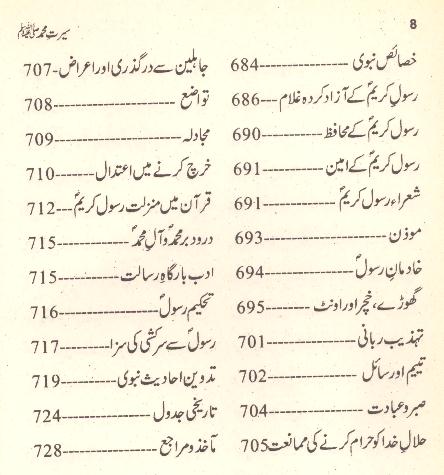 8
سیرت محمد ﷺ
خصائص نبوی ---------------- 684
رسول کریمؐ کے آزاد کردہ غلام --- 686
رسول کریمؐ کے محافظ ---------- 690
رسول کریمؐ کے امین ---------- 691
شعراء رسول کریمؐ ------------ 691
موذن ------------------- 693
خادمان رسولؐ -------------- 694
گھوڑے، خچر اور اونٹ -------- 695
تہذیب ربانی -------------- 701
یتیم اور سائل -------------- 702
صبر و عبادت -------------- 704
حلال خدا کو حرام کرنے کی ممانعت 705
جاہلین سے درگذری اور اعراض - 707
تواضع ------------------- 708
مجادلہ ------------------- 709
خرچ کرنے میں اعتدال ------- 710
قرآن میں منزلت رسول کریمؐ --- 712
درود بر محمدؐ و آل محمدؐ ---------- 715
ادب بارگاہ رسالت ---------- 715
تحکیم رسولؐ --------------- 716
رسولؐ سے سرکشی کی سزا -------- 717
تدوین احادیث نبوی --------- 719
تاریخی جدول -------------- 724
مآخذ و مراجع -------------- 728